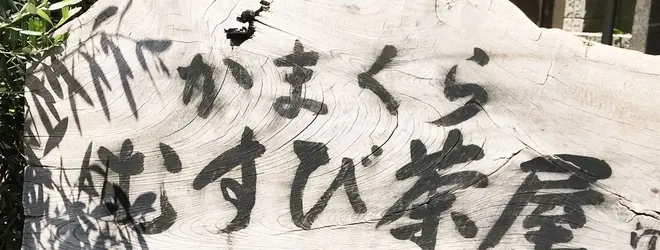 かまくら
むすび茶屋